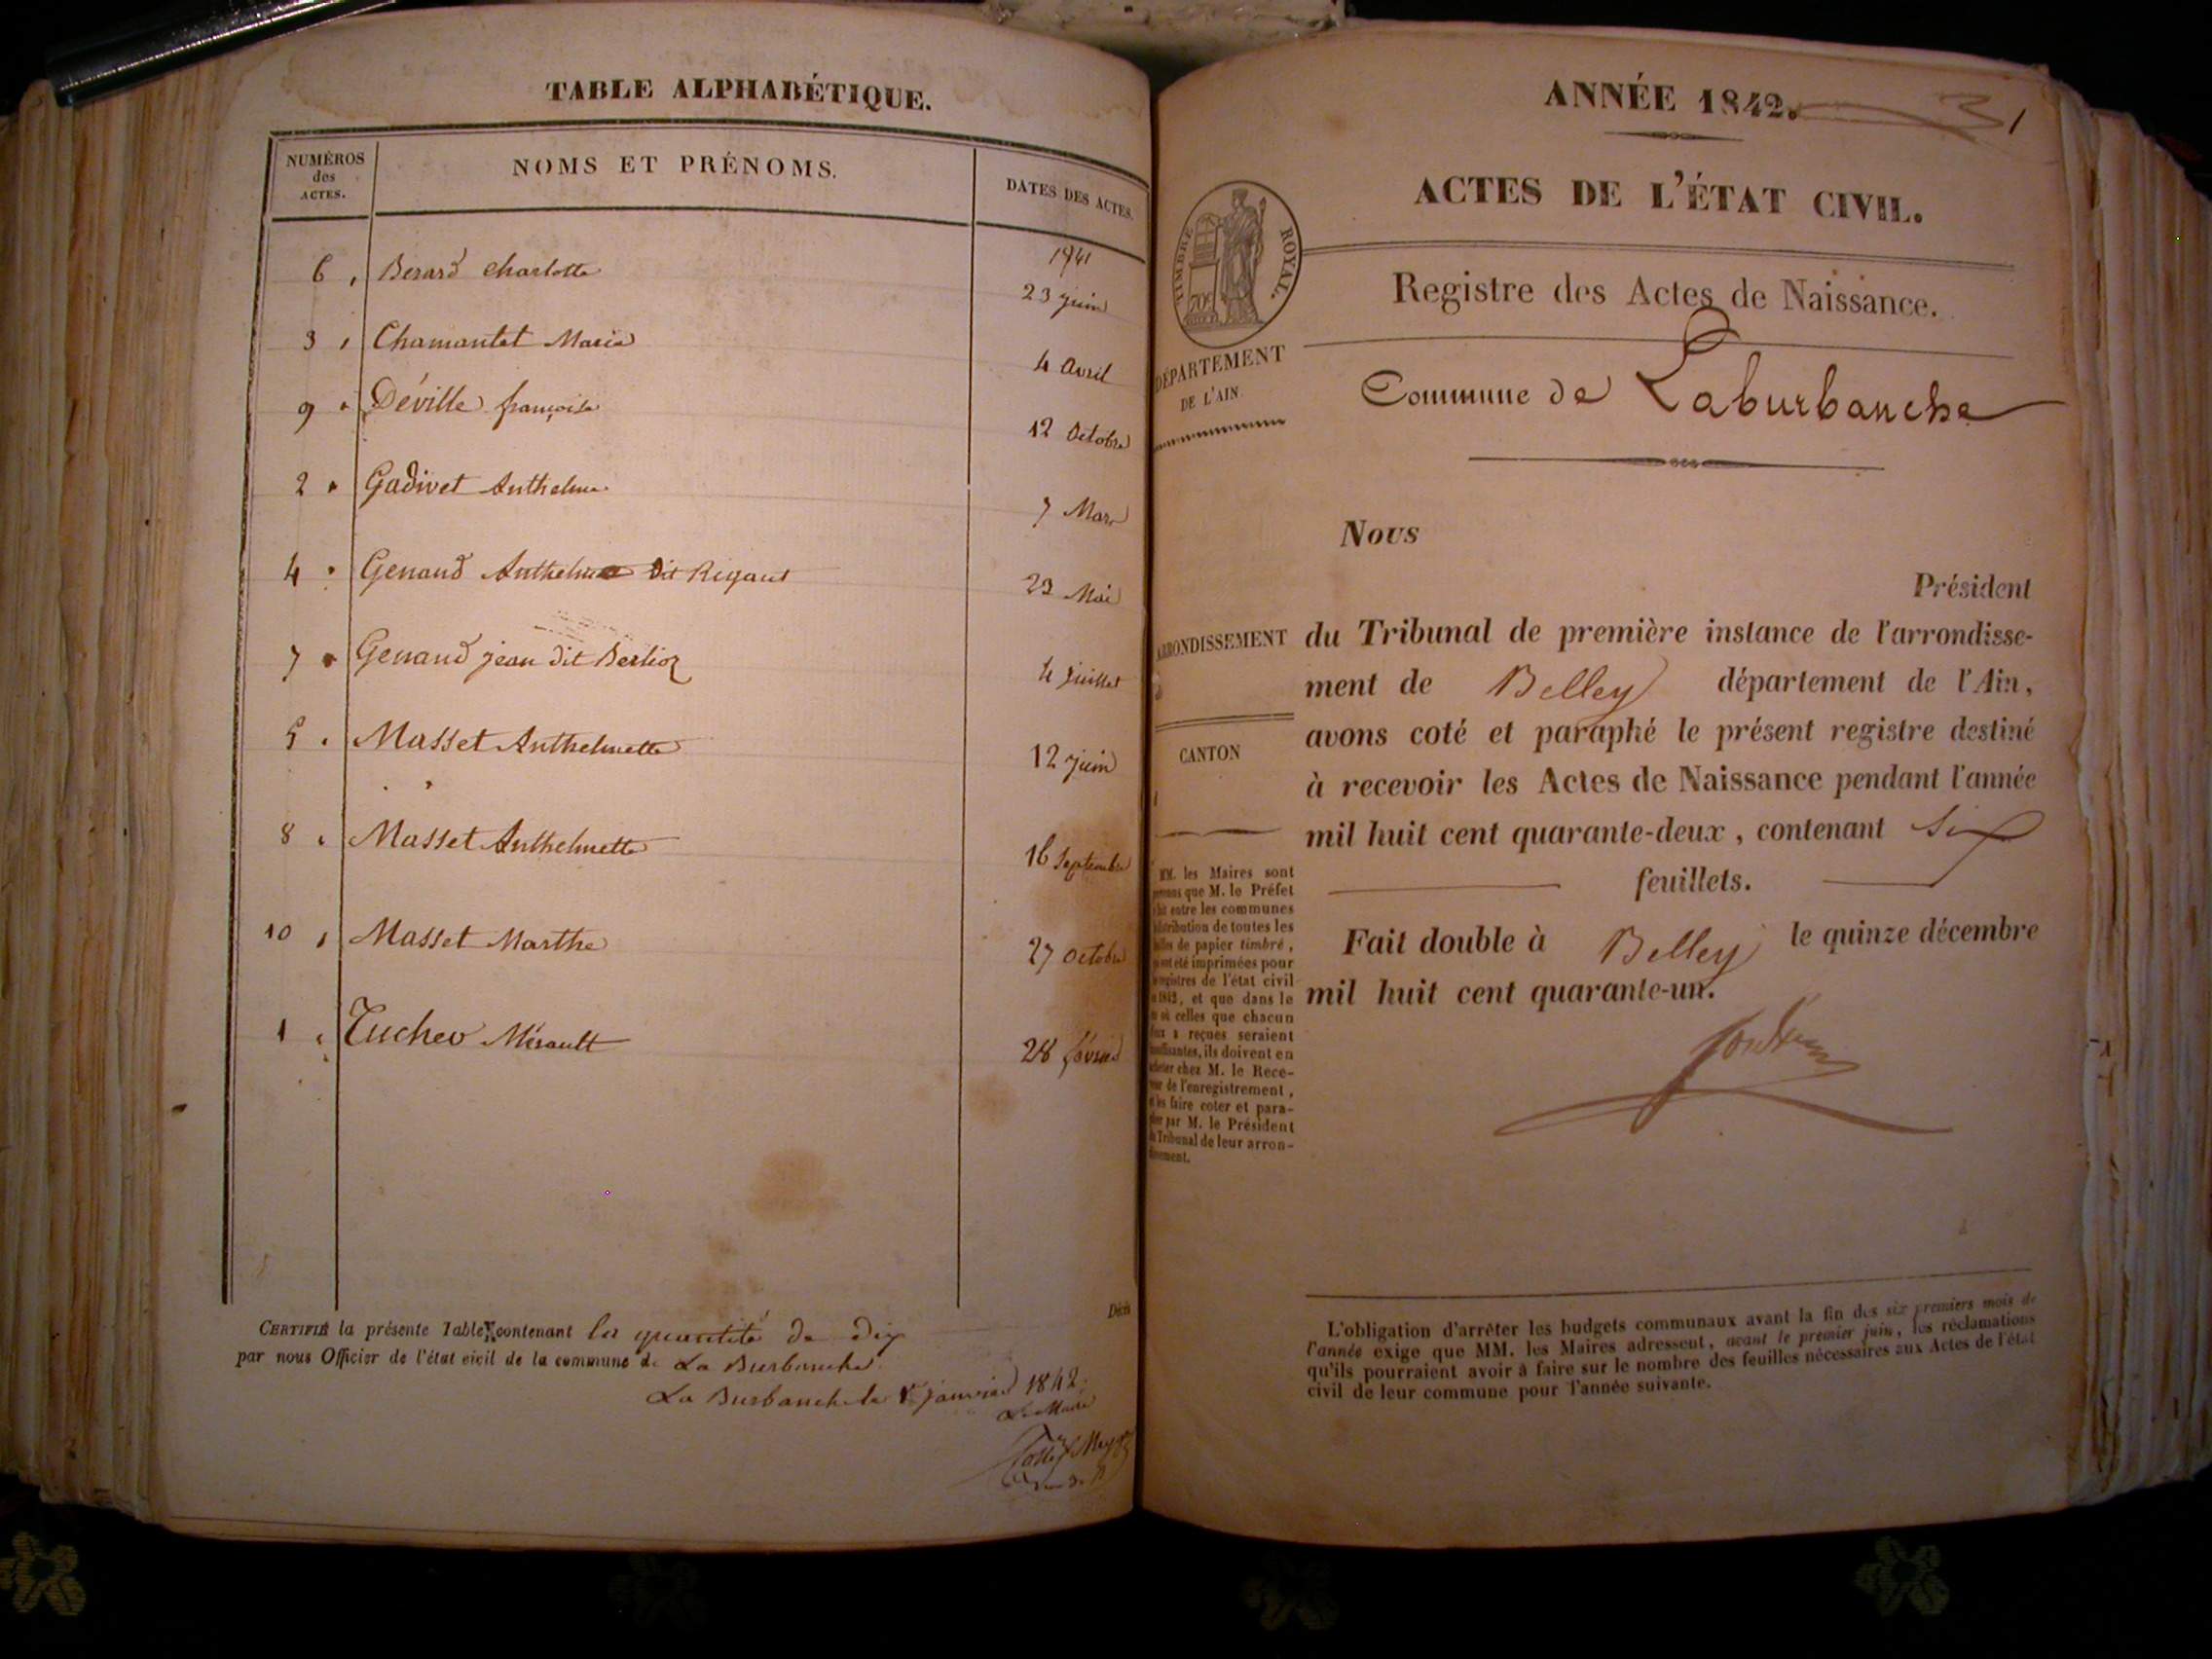 TABLE ALPHABÉTIQUE.
NUMÉROS des ACTES.
NOMS ET PRÉNOMS.
DATES DES ACTES.
1841
6 Berard Charlotte 23 juin
3 Chamantet Marie 4 Avril
9 Déville françoise 12 Octobre
2 Gadivet Anthelme 7 Mars
4 Genand Anthelme dit Rigaut 23 Mai
7 Genand jean dit Berlioz 4 juillet
5 Masset Anthelmette 12 juin
8 Masset Anthelmette 16 Septembre
10 Masset Marthe 27 Octobre
1 Mérault 28 février
Décès
CERTIFIÉ la présente Table contenant la quantité de dix
par nous Officier de l'état civil de la commune de La Burbanche
La Burbanche le janvier 1842
Le Maire
ANNÉE 1842.
1
ACTES DE L'ÉTAT CIVIL.
TIMBRE ROYAL.
70c
Registre des Actes de Naissance.
DÉPARTEMENT
DE L'AIN
Commune de Laburbanche
Nous
Président
ARRONDISSEMENT
du Tribunal de première instance de l'arrondisse-
ment de Belley département de l'Ain,
avons coté et paraphé le présent registre destiné
CANTON
à recevoir les Actes de Naissance pendant l'année
mil huit cent quarante-deux, contenant Six
feuillets.
Fait double à Belley le quinze décembre
mil huit cent quarante-un.
MM. les Maires sont
que M. le Préfet
fait entre les communes
distribution de toutes les
de papier timbré,
ont été imprimées pour
registres de l'état civil
1842, et que dans le
où celles que chacun
a reçues seraient
insuffisantes, ils doivent en
acheter chez M. le Rece-
veur de l'enregistrement,
et les faire coter et para-
pher par M. le Président
du Tribunal de leur arron-
dissement.
L'obligation d'arrêter les budgets communaux avant la fin des six premiers mois de
l'année exige que MM. les Maires adressent, avant le premier juin, les réclamations
qu'ils pourraient avoir à faire sur le nombre des feuilles nécessaires aux Actes de l'état
civil de leur commune pour l'année suivante.